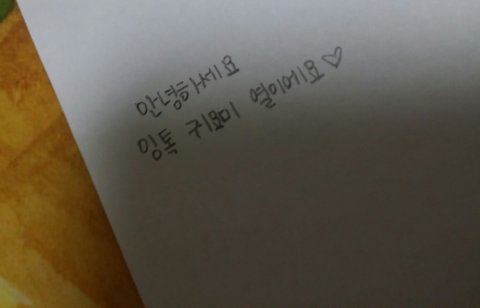 안녕하세요
잉톡 귀요미 열이에요♡